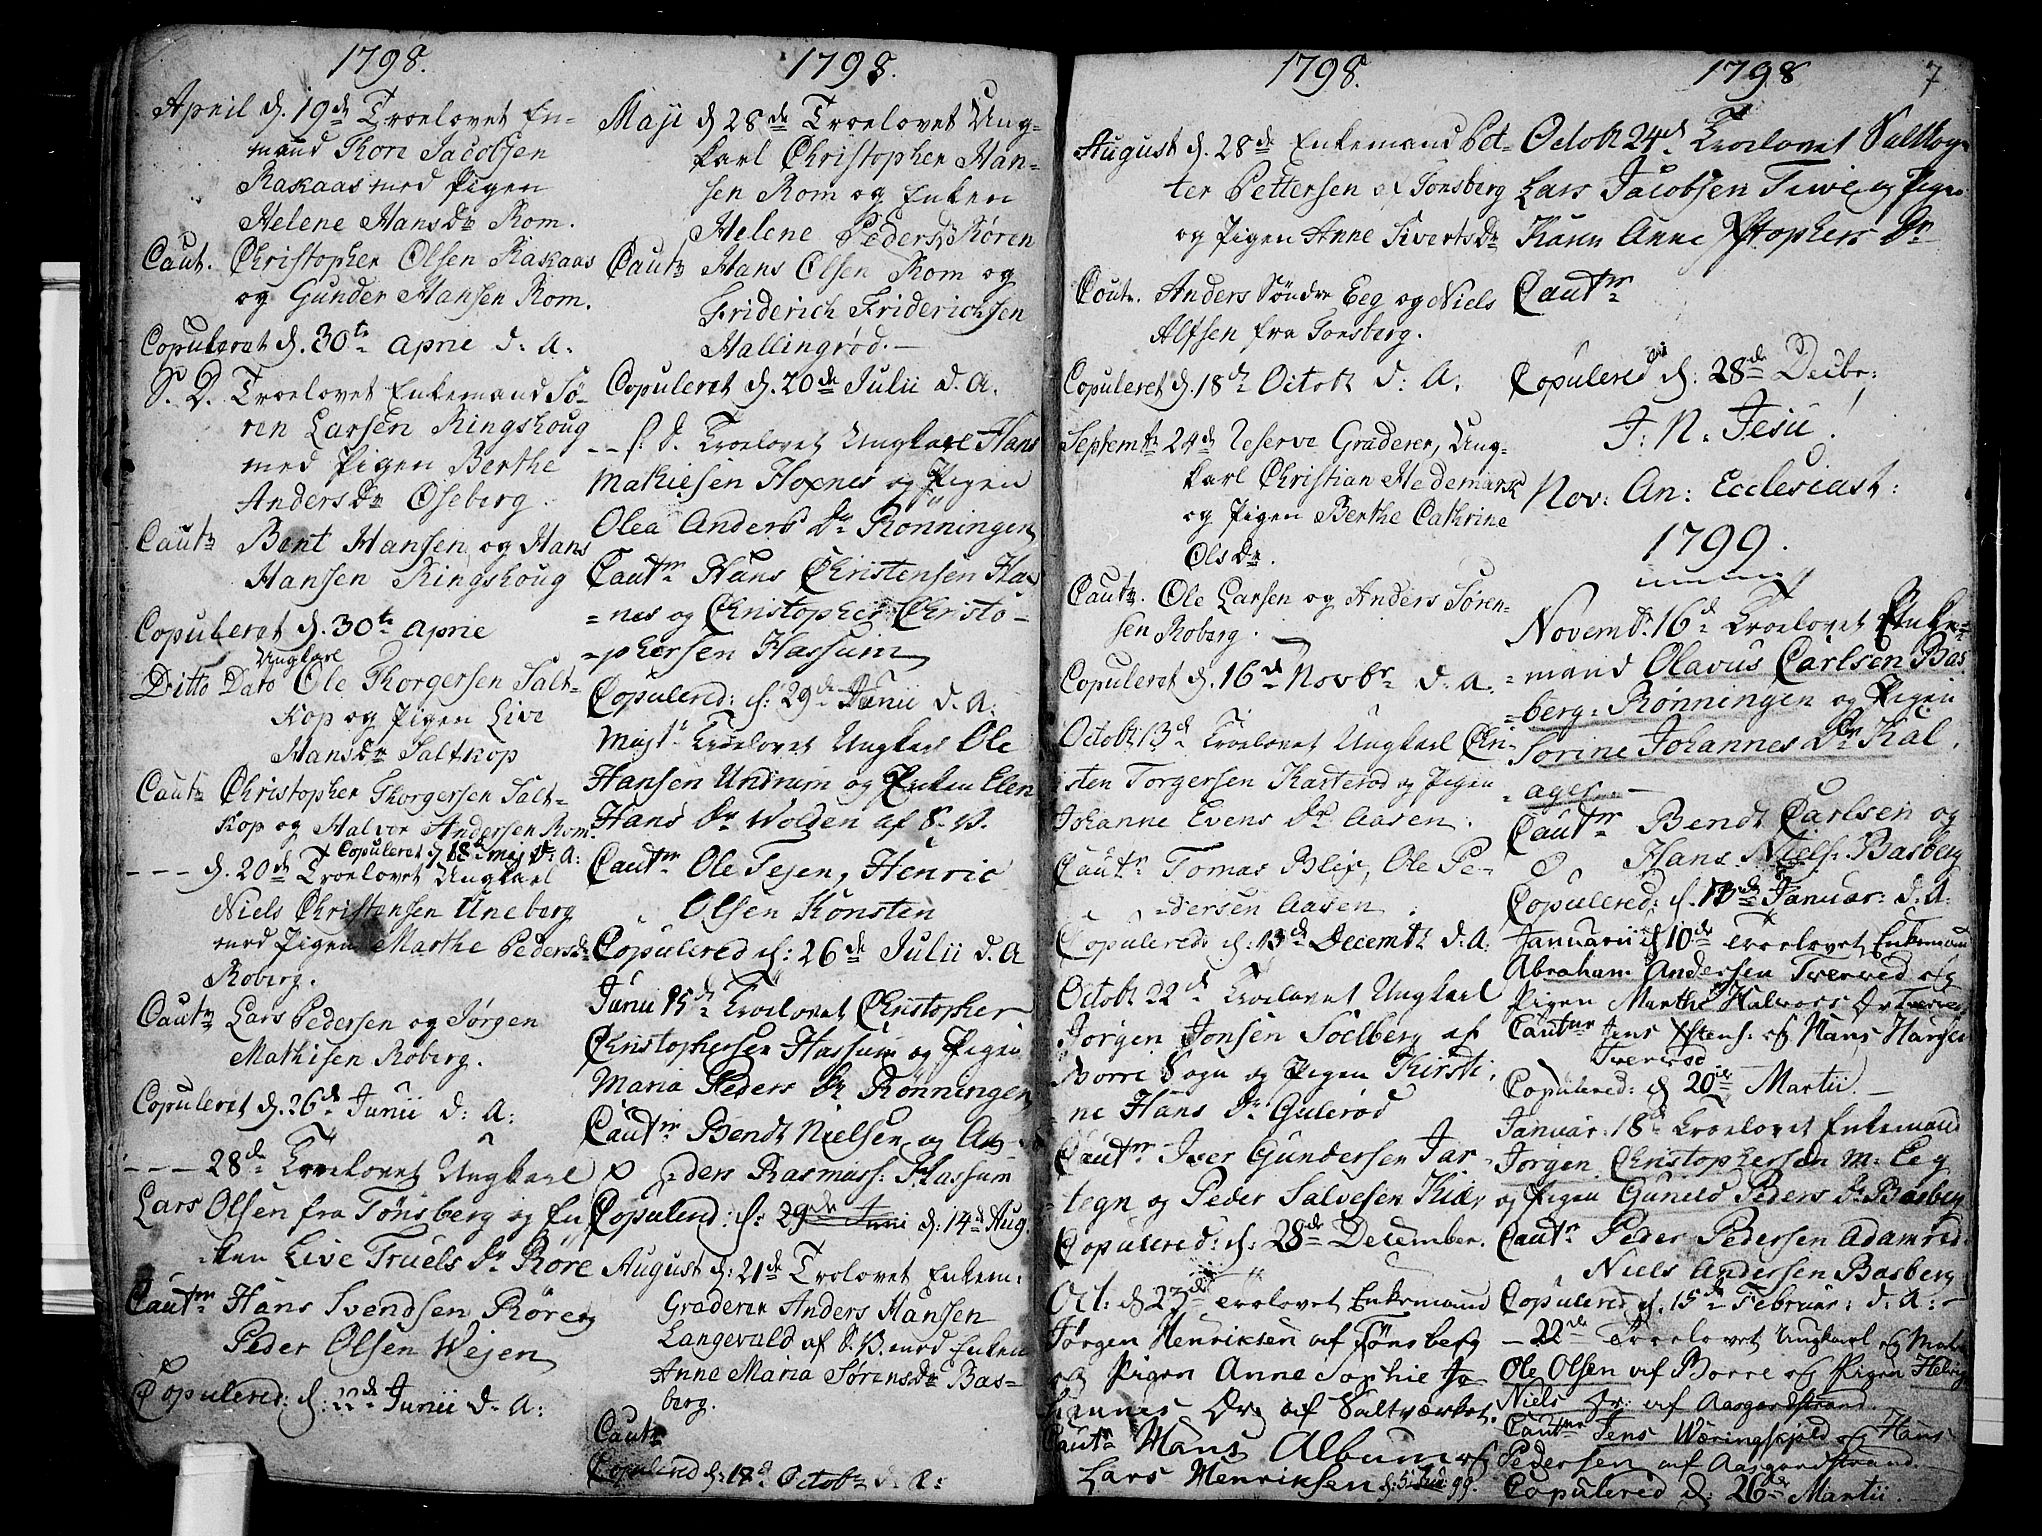 1798.
April d. 19de Troelovet En-
mand Tore Jacobsen
Rakaas med Pigen
Helene Hansdr Rom.
Caut. Christopher Olsen Rakaas
og Gunder Hansen Rom.
Copuleret d. 30te April d: A:
S. D. Troelovet Enkemand Sø-
ren Larsen Ringshoug
med Pigen Berthe
Andersdr Oseberg.
Cautr Bent Hansen og Hans
Hansen Ringshoug
Copuleret d. 30te April
Ungkarl
Ditto Dato Ole Thorgersen Salt-
kop og Pigen Live
Hansdr Saltkop
Cautr Christopher Thorgersen Salt-
kop og Halvor Andersen Rom.
Copuleret d 18de maj d: A:
- - - d. 20de Troelovet Ungkarl
Niels Christensen Uneberg
med Pigen Marthe Pedersdr
Roberg.
Cautr Lars Pedersen og Jørgen
Mathisen Roberg.
Copuleret d. 26de Junii d: A:
- - - 28de Troelovet Ungkarl
Lars Olsen fra Tønsberg og En-
ken Live Truels Dr Røre
Cautr Hans Svendsen Røre og
Peder Olsen Wejen
Copulered: d: 22de Junii d: A:
1798.
Maji d 28de Troelovet Ung-
karl Christopher Han-
sen Rom og Enken
Helene Pedersdr Røren
Cautr Hans Olsen Rom og
Friderich Friderichsen
Hallingrød.
Copuleret d. 20de Julii d. A.
- - s. d. Troelovet Ungkarl Hans
Mathiesen Hoxnes og Pigen
Olea Anders Dr Rönningen
Cautr Hans Christensen Hax
=nes og Christopher Christo-
=phersen Hassum
Copulered: d: 29de Junii d. A:
Troelovet Ungkarl Ole
Hansen Undrum og Enken Elen
Hans Dr Wolden af S. V.
Cautr Ole Tejen, Henric
Olsen Konsten
Copulered d: 26de Julii d. A
Junii 15de Troelovet Christopher
Christophersen Hassum og Pigen
Maria Peders Dr Rönningen
Cautr Bendt Nielsen og An-
ders Rasmuss: Hassum
Copulered: d: 29de Juni d: 14de Aug.
August d: 21de Trolovet Enkem:
Graderer Anders Hansen
Langevald af S. V. med Enken
Anne Maria Sørensdr Bas-
berg.
Cautr
Copulered d: 18de Octobr d: A:
1798.
August d. 28de Enkemand Pet-
ter Pettersen af Tonsberg
og Pigen Anne Sivertsdr
Coutr. Anders Söndre Eeg og Niels
Alfsen fra Tonsberg.
Copuleret d. 18de Octobr d: A.
Septembr 24de Reserve Graderer, Ung-
karl Christian Hedemark
og Pigen Berthe Cathrine
Olsdr.
Cautr. Ole Larsen og Anders Søren-
sen Roberg.
Copuleret d. 16de Novbr d. a.
Octobr 13de Troelovet Ungkarl Cri-
sten Torgersen Karterod og Pigen
Johanne Evens Dr Aasen.
Cautr Tomas Blix, Ole Pe-
=dersen Aasen
Copulered: d: 13de Decembr d. A.
Octobr 22de Troelovet Ungkarl
Jorgen Jonsen Soelberg af
Borre Sogn og Pigen Kirsti-
ne Hans Dr Gulerod
Cautr Iver Gundersen Jar-
tegn og Peder Salvesen Kid;
Copulered: d: 28de December.
Oct: d 23de Troelovet Enkemand
Jørgen Henriksen af Tönsberg
og Pigen Anne Sophie Jo-
hannes Dr. af Saltværket.
Cautr Hans Album og
Lars Henriksen d: 5 99.
1798
7
Octobr 24de Troelovet Saltkog
Lars Jacobsen Tveve og Pigen
Karen Anne Xstophers Dr
Cautr
Copulered d: 28de Decbr;
J: N: Jesu.
Nov: An: Ecclesiast:
1799.
Novembr 16de Troelovet Enke=
=mand Olavus Carlsen Bas
=berg= Rønningen og Pigen
Sorine Johannes Dr Kal.
=ager. -
Cautr Bendt Carlsen og
Hans Niels: Basberg
Copulered: d. 13de Januar: d. A:
Januarii d 10de Troelovet Enkemand
Abraham Andersen Tvervod og
Pigen Marthe Halvors Dr
Cautnr Jens Xstens: og Hans Hansen
Tvererød
Copulered: d 20de Martii.
Januar: 18de Troelovet Enkemand
Jörgen Christophersen M: Eeg
og Pigen Guneld Peders Dr Basberg
Cautr Peder Pedersen Adamrød
Niels Andersen Basberg
Copulered d. 15de Februar: d: A:
- 22de Troelovet Ungkarl og Matr.
Ole Olsen af Borre og Pigen Helvig
Niels Dr: af Aasgaardstrand.
Cautnr Jens Wæringskjold og Hans
Pedersen af Aasgaardstrand.
Copulered d: 26de Martii.